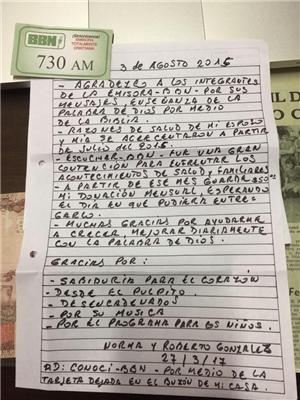 BBN
EMISORA
TOTALMENTE
CRISTIANA
730 AM
3 DE AGOSTO 2015
- AGRADEZCO A LOS INTEGRANTES
DE LA EMISORA-BBN-POR SUS
MENSAJES, ENSEÑANZA DE LA
PALABRA DE DIOS POR MEDIO
DE LA BIBLIA.
- RAZONES DE SALUD DE MI ESPOSO
Y MIA SE ACRECENTARON A PARTIR
DE JULIO DEL 2015.
- ESCUCHAR-BBN-FUE UNA GRAN
CONTENCION PARA SUFRUTAR LOS
ACONTECIMIENTOS DE SALUD Y FAMILIARES
- A PARTIR DE ESE MES GUARDE
MI DONACIÓN MENSUAL, ESPERANDO
EL DIA EN QUE PUDIERA ENTRE-
GARLO.
- MUCHAS GRACIAS POR AYUDARME
A CRECER, MEJORAR DIARIAMENTE
CON LA PALABRA DE DIOS.
GRACIAS POR:
- SABIDURIA PARA EL CORAZÓN
- DESDE EL PULPITO.
- DESENCADENADOS
- POR SU MUSICA
- POR EL PROGRAMA PARA LOS NIÑOS.
NORMA Y ROBERTO GONZALEZ
27/3/17
AD: CONOCI-BBN-POR MEDIO DE LA
TARJETA DEJADA EN EL BUZÓN DE MI CASA.